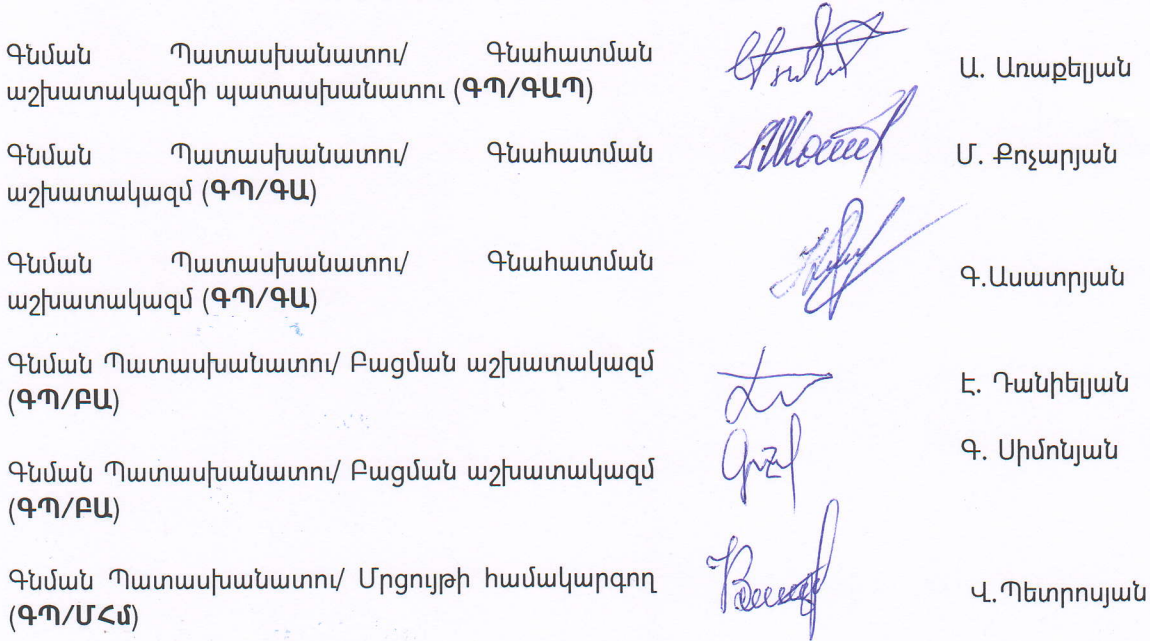 Գնման Պատասխանատու/ Գնահատման
աշխատակազմի պատասխանատու (ԳՊ/ԳԱՊ)
Ա. Առաքելյան
Գնման Պատասխանատու/ Գնահատման
աշխատակազմ (ԳՊ/ԳԱ)
Մ. Քոչարյան
Գնման Պատասխանատու/ Գնահատման
աշխատակազմ (ԳՊ/ԳԱ)
Գ.Ասատրյան
Գնման Պատասխանատու/ Բացման աշխատակազմ
(ԳՊ/ԲԱ)
Է. Դանիելյան
Գնման Պատասխանատու/ Բացման աշխատակազմ
(ԳՊ/ԲԱ)
Գ. Սիմոնյան
Գնման Պատասխանատու/ Մրցույթի համակարգող
(ԳՊ/ՄՀմ)
Վ.Պետրոսյան